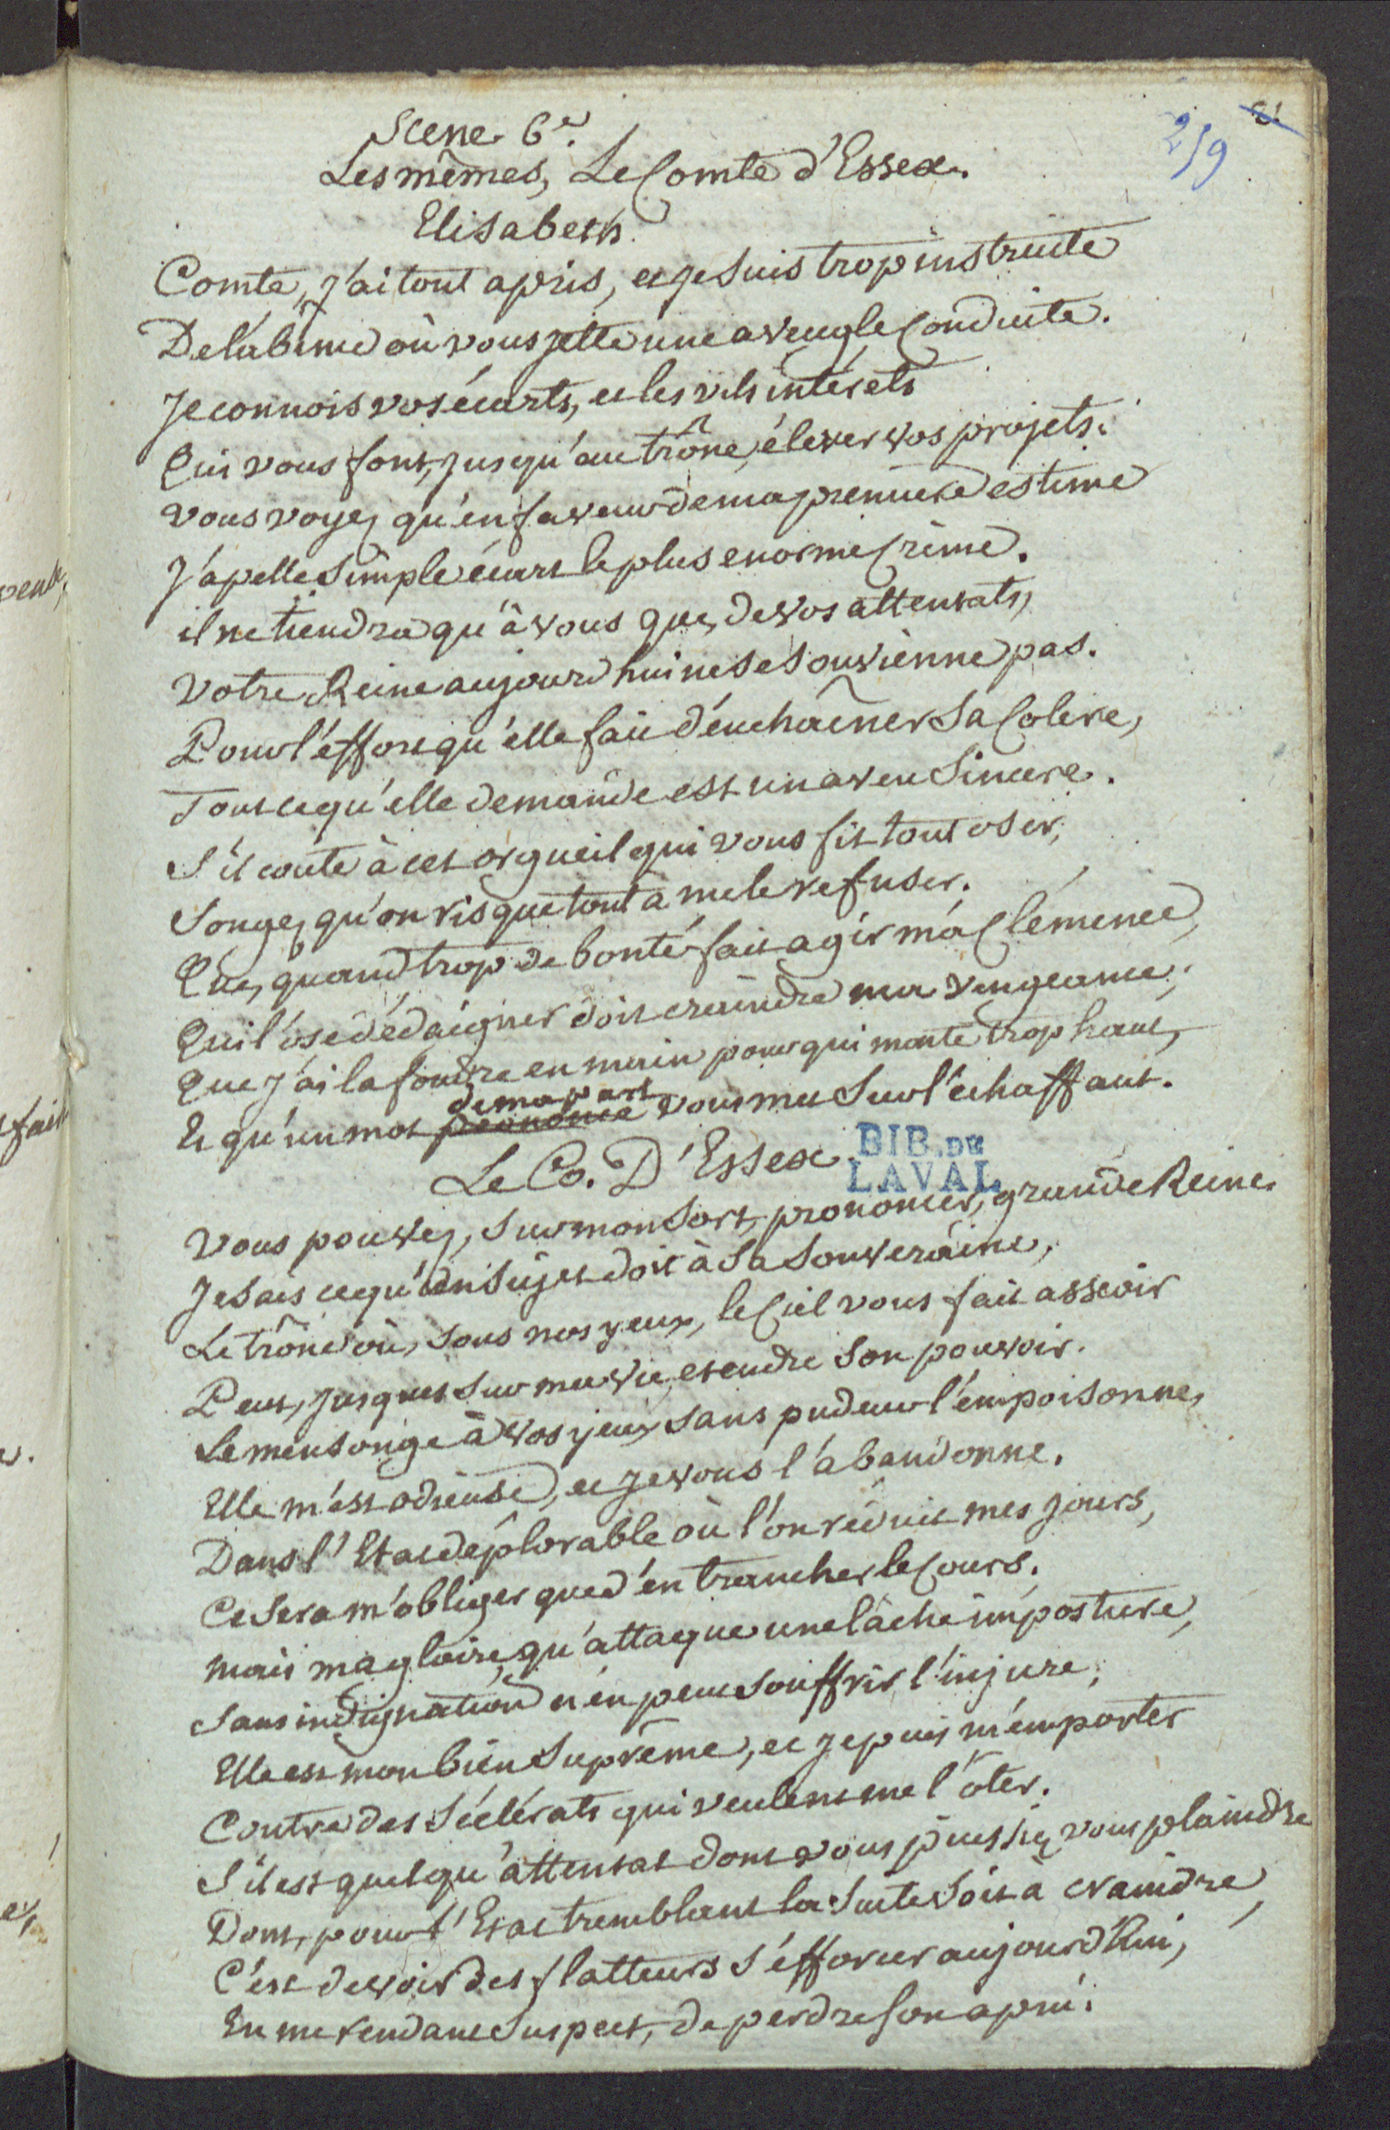 259
Scene 6e.
Les mêmes, Le Comte d'Essex.
Elisabeth.
Comte, j'ai tout apris, et je suis trop instruite
De l'abîme où vous jette une aveugle Conduite.
Je connois vos écarts, et les vils intérets
Qui vous font, jusqu'au trône, élever vos projets.
Vous voyez qu'en faveur de ma premiere estime
J'apelle simple écart le plus enorme Crime.
il ne tiendra qu'à vous que, de vos attentats,
Votre Reine aujourd'hui ne se souvienne pas.
Pour l'effort qu'elle fait d'enchaîner sa Colere,
Tout ce qu'elle demande est un aveu sincere.
S'il coute à cet orgueil qui vous fit tout oser,
Songez qu'on risque tout à me le refuser.
Que, quand trop de bonté fait agir ma Clémence,
Qui l'ose dédaigner doit craindre ma vengeance;
Que j'ai la foudre en main pour qui monte trop haut,
de ma part
Et qu'un mot prononcé vous met sur l'échaffaut.
Le Co. D'Essex.
BIB. DE
LAVAL
Vous pouvez, sur mon sort, prononcer, grande Reine.
Je sais ce qu'un sujet doit à sa Souveraine,
Le trône où, sous nos yeux, le Ciel vous fait asseoir
Peut, jusques sur ma vie, etendre son pouvoir.
Le mensonge à vos yeux sans pudeur l'empoisonne,
Elle m'est odieuse, et je vous l'abandonne.
Dans l'Etat déplorable où l'on réduit mes jours,
Ce sera m'obliger que d'en trancher le Cours.
Mais ma gloire, qu'attaque une lâche imposture,
Sans indignation n'en peut souffrir l'injure;
Elle est mon bien suprême, et je puis m'emporter
Contre des scélérats qui veulent me l'ôter.
S'il est quelqu'attentat dont vous puissiez vous plaindre
Dont, pour l'Etat tremblant la suite soit à craindre,
C'est de voir des flatteurs s'efforcer aujourd'hui,
En me rendant suspect, de perdre son apui.